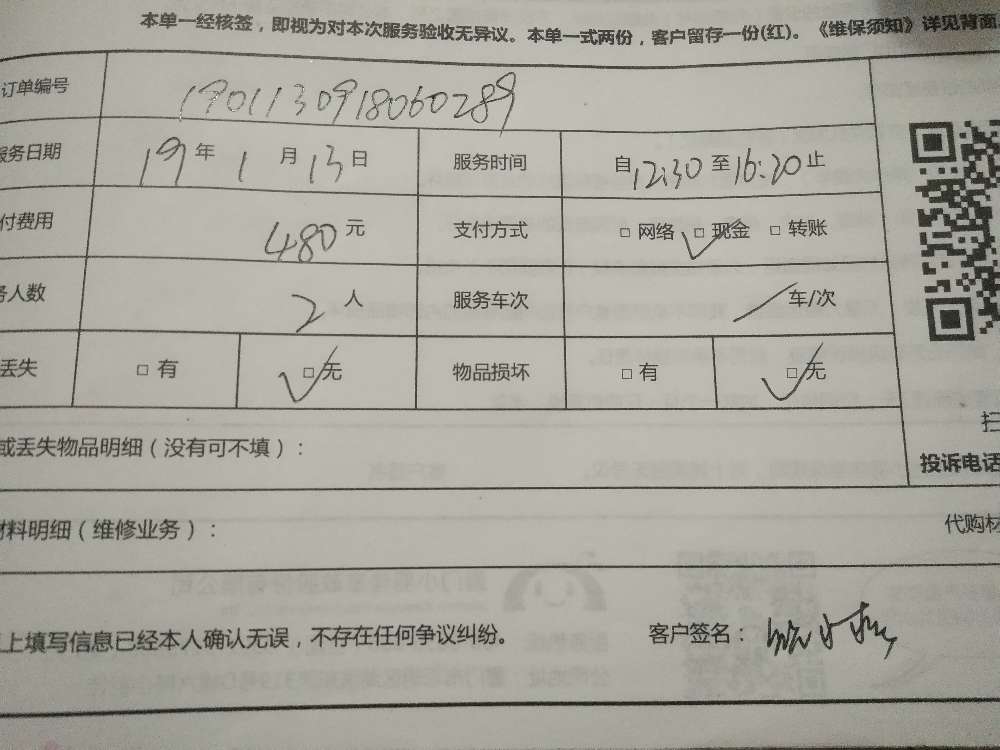 本单一经核签，即视为对本次服务验收无异议。本单一式两份，客户留存一份(红)。《维保须知》详见背面
订单编号 1901130918060289
服务日期 19 年 1 月 13 日 服务时间 自 12:30 至 16:20 止
付费用 480 元 支付方式 □ 网络 □ 现金 □ 转账
务人数 2 人 服务车次 车/次
丢失 □ 有 □ 无 物品损坏 □ 有 □ 无
扫
或丢失物品明细（没有可不填）：
投诉电话
材料明细（维修业务）： 代购材
上填写信息已经本人确认无误，不存在任何争议纠纷。 客户签名：